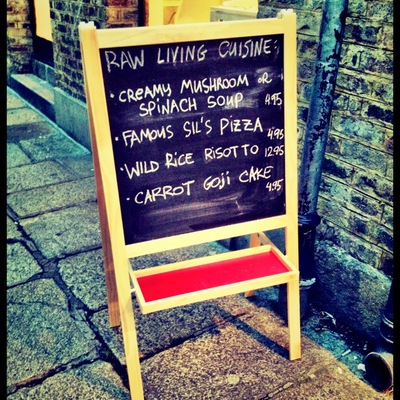 RAW LIVING CUISINE:
• CREAMY MUSHROOM OR
SPINACH SOUP 4.95
• FAMOUS SIL'S PIZZA 4.95
• WILD RICE RISOTTO 12.95
• CARROT GOJI CAKE 4.95